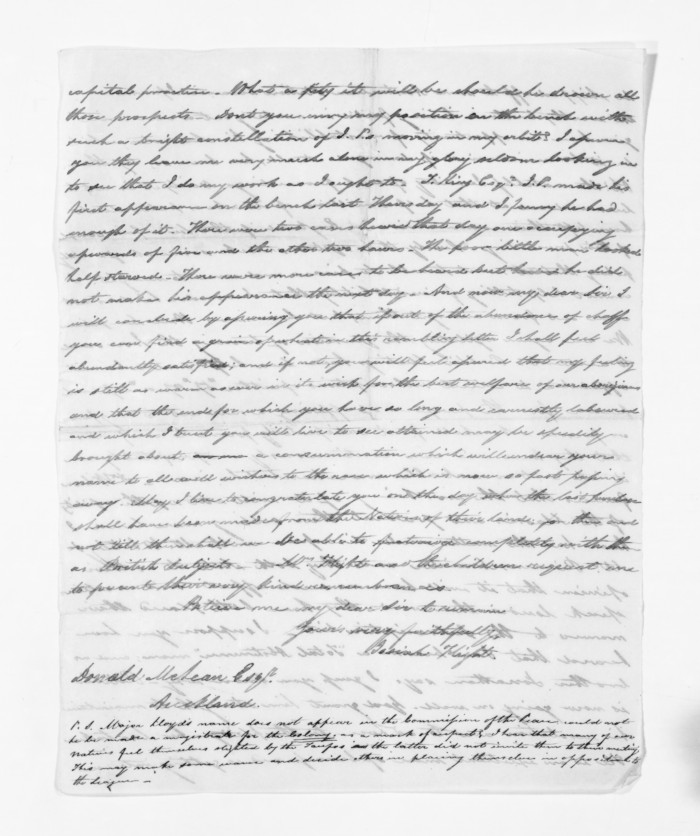 capital practice. What a pity it will be should he drown all
those prospects. Dont you envy my position on the bench with
such a bright constellation of J. Ps moving in my orbit? I assure
you they leave me very much alone in my glory seldom looking in
to see that I do my work as I ought to. T. King Esq. J.P. made his
first appearance on the bench last Thursday and I fancy he had
enough of it. There were two cases heard that day one occupying
upwards of five and the other two hours. The poor little man looked
half starved. There were more cases to be heard but he did
not make his appearance the next day. And now my dear Sir I
will conclude by assuring you that if out of the abundance of chaff
you can find a grain of wheat in this rambling letter I shall feel
abundantly satisfied; and if not, you will feel assured that my feeling
is still as warm as ever in its wish for the best welfare of our aborigines
and that the end for which you have so long and earnestly laboured
and which I trust you will live to see attained may be speedily
brought about, a consummation which will endear your
name to all well wishers to the race which is now so fast passing
away. May I live to congratulate you on the day when the last purchase
shall have been made from the Natives of this land, for then and
not till then shall we be able to fraternize completely with them
as British subjects. Mrs. Flight and the children request me
to present their very kind remembrances.
Believe me my dear Sir to remain
Yours very faithfully,
Josiah Flight.
Donald McLean Esqr.
Auckland.
P.S. Major Lloyds name does not appear in the Commission of the Peace could not
he be made a magistrate for the Colony as a mark of respect? I hear that many of our
Natives feel themselves slighted by the Taupos as the latter did not invite them to their meeting.
This may make some waver and decide others in placing themselves in opposition to
the League.